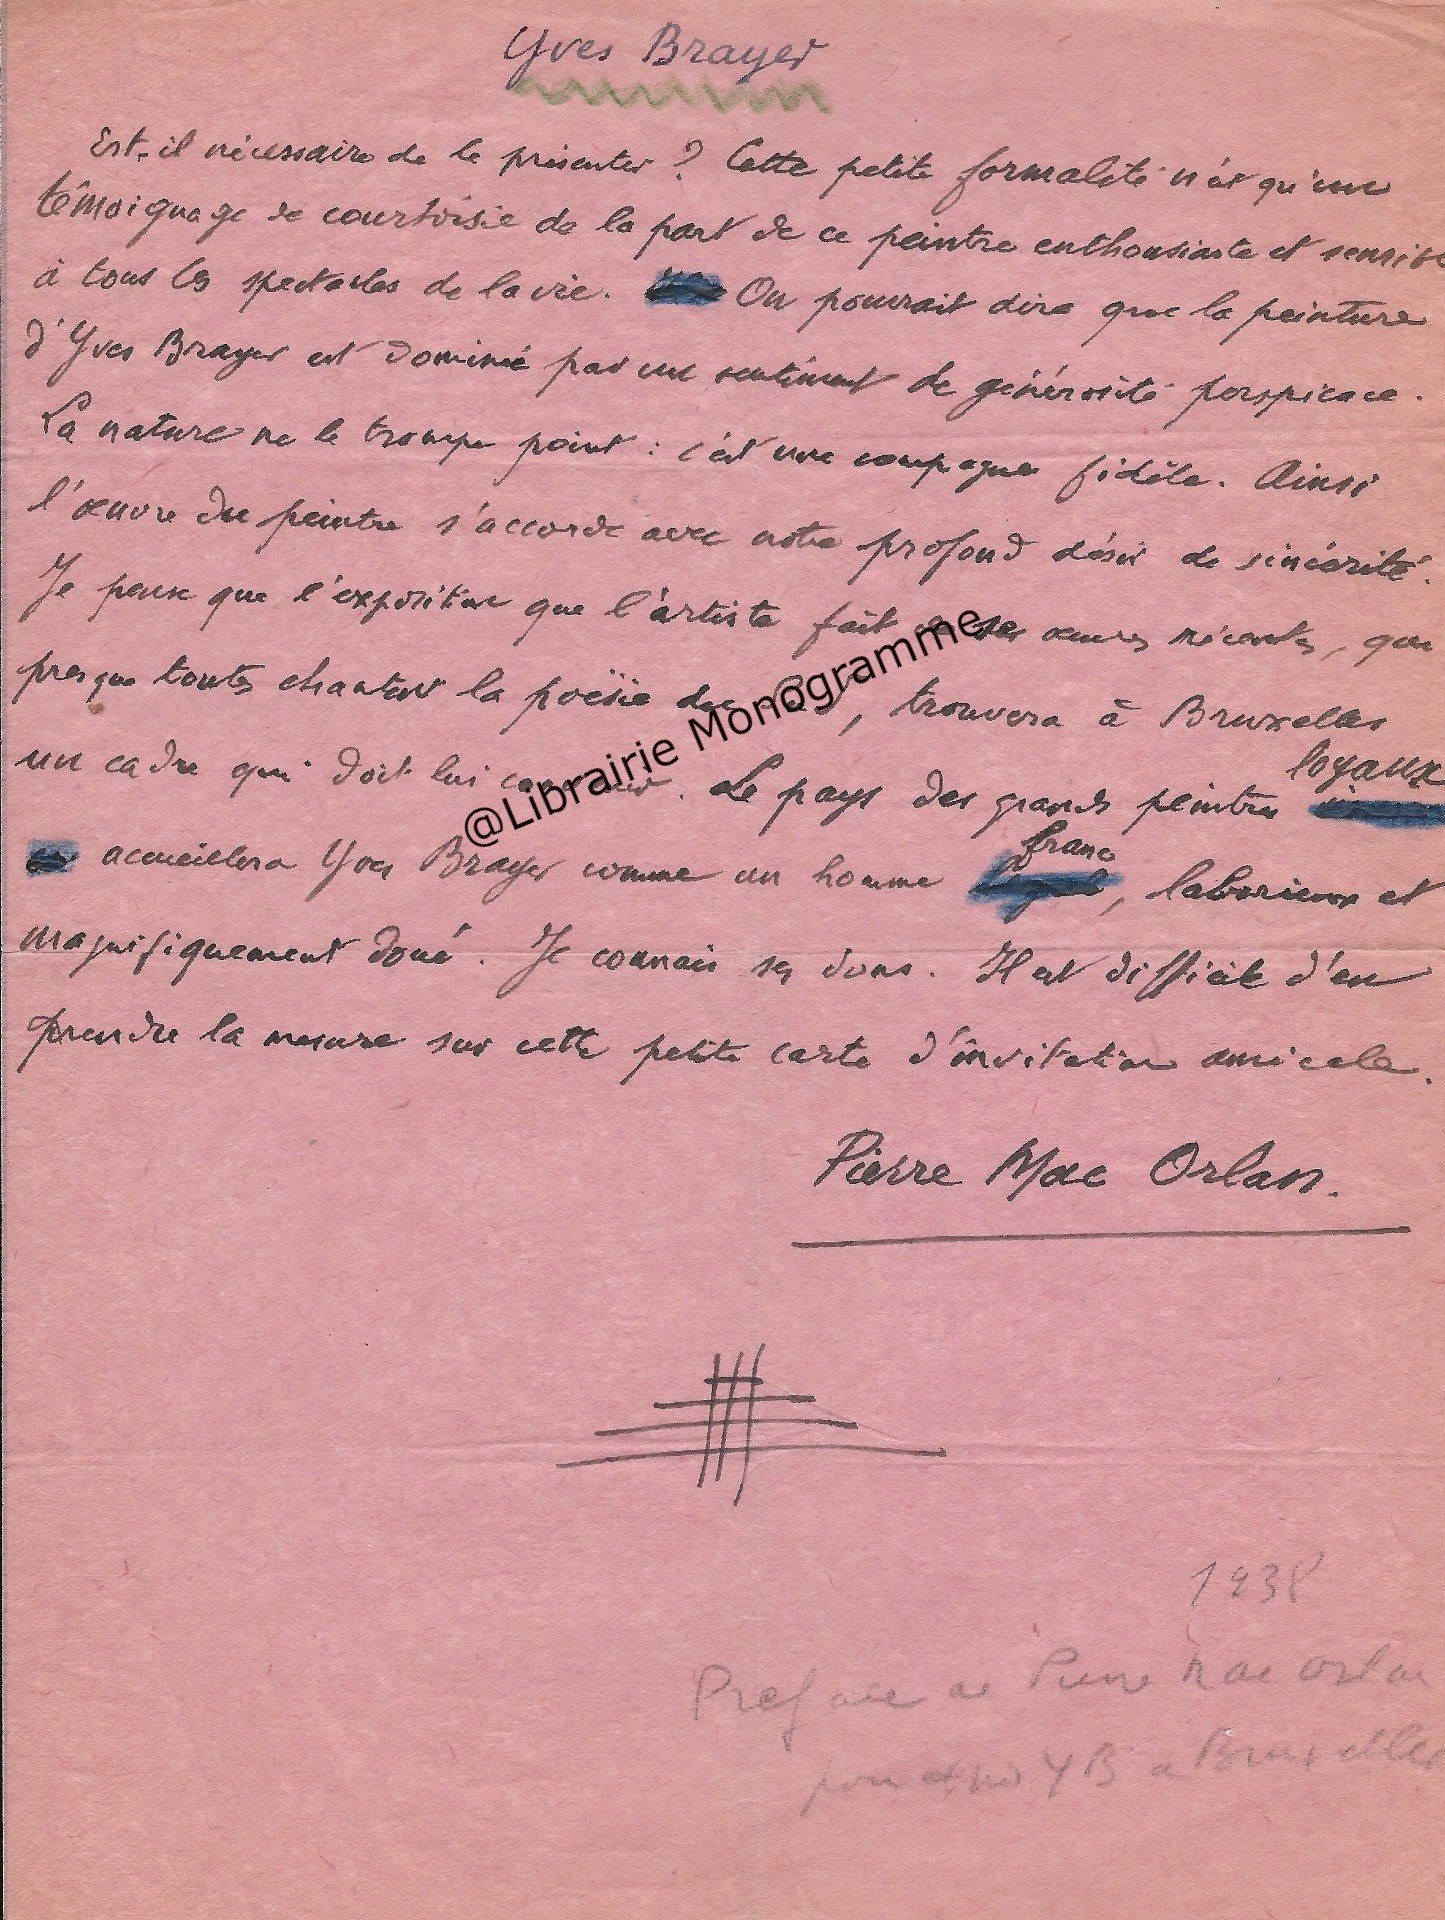 Yves Brayer
Est-il nécessaire de le présenter ? Cette petite formalité n'est qu'un
témoignage de courtoisie de la part de ce peintre enthousiaste et sensible
à tous les spectacles de la vie. On pourrait dire que la peinture
d'Yves Brayer est dominée par un sentiment de générosité perspicace.
La nature ne le trompe point : c'est une compagne fidèle. Ainsi
l'œuvre du peintre s'accorde avec notre profond désir de sincérité.
Je pense que l'exposition que l'artiste fait ses œuvres récentes, qui
presque toutes chantent la poësie du , trouvera à Bruxelles
un cadre qui doit lui convenir. Le pays des grands peintres loyaux
accueillera Yves Brayer comme un homme franc, laborieux et
magnifiquement doué. Je connais ses dons. Il est difficile d'en
prendre la mesure sur cette petite carte d'invitation amicale.
Pierre Mac Orlan.
@Librairie Monogramme
1938
Preface de Pierre Mac Orlan
pour expo YB a Bruxelles